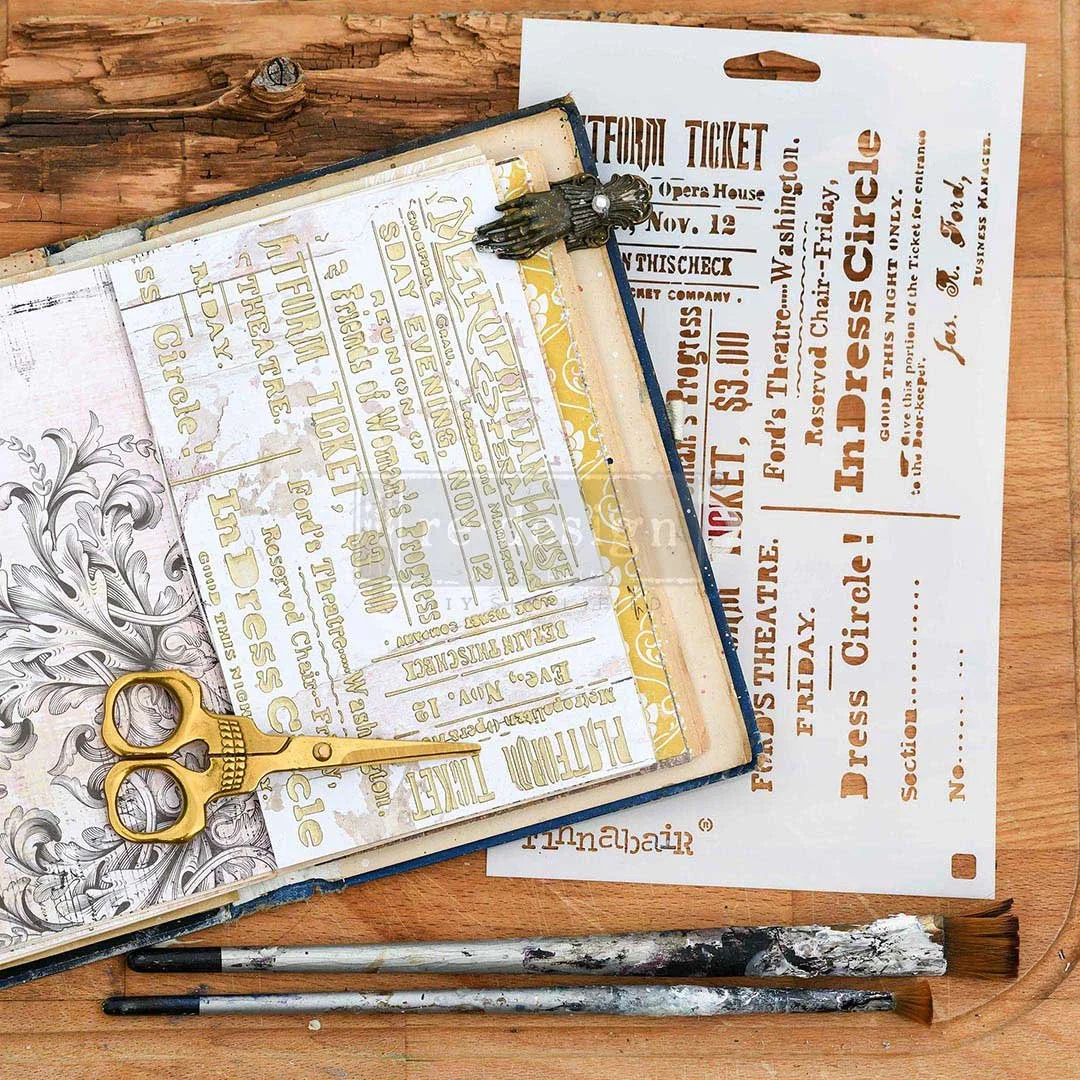 TFORM TICKET
Opera House
Nov. 12
N THIS CHECK
KET COMPANY.
's Progress
TICKET, $3.00
Ford's Theatre....Washington.
Reserved Chair-Friday,
In Dress Circle
GOOD THIS NIGHT ONLY.
Give this portion of the Ticket for entrance
to the Door-keeper.
Jas. R. Ford,
BUSINESS MANAGER.
FORD'S THEATRE.
FRIDAY.
Dress Circle!
Section
No.
Finnabair®
METROPOLITAN
SDAY EVENING, NOV 12
REUNION OF
Friends of Woman's Progress
ATFORM TICKET, $3.00
S THEATRE.
RIDAY.
ss Circle!
Ford's Theatre....Wash
ton.
Reserved Chair-Fr
In Dress Circle
GOOD THIS NIGH
GLOBE TICKET COMPANY.
RETAIN THIS CHECK
Eve, Nov. 12
Metropolitan Opera
PLATFORM TICKET
re·design